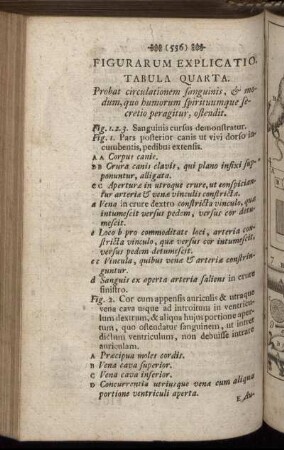 (556)
FIGURARUM EXPLICATIO.
TABULA QUARTA.
Probat circulationem sanguinis, & mo-
dum, quo humorum spirituumque se-
cretio peragitur, ostendit.
Fig. 1. 2. 3. Sanguinis cursus demonstratur.
Fig. 1. Pars posterior canis ut vivi dorso in-
cumbentis, pedibus extensis.
A A Corpus canis.
B B Crura canis clavis, qui plano infixi sup-
ponuntur, alligata.
c c Apertura in utroque crure, ut conspician-
tur arteria & vena vinculis constricta.
a Vena in crure dextro constricta vinculo, quæ
intumescit versus pedem, versus cor detu-
mescit.
b Loco b pro commoditate loci, arteria con-
stricta vinculo, quæ versus cor intumescit,
versus pedem detumescit.
c c Vincula, quibus vena & arteria constrin-
guntur.
d Sanguis ex aperta arteria saliens in crure
sinistro.
Fig. 2. Cor cum appensis auriculis & utraque
vena cava usque ad introitum in ventricu-
lum dextrum, & aliqua hujus portione aper-
tum, quo ostendatur sanguinem, ut intret
dictum ventriculum, non debuisse intrare
auriculam.
A Præcipua moles cordis.
B Vena cava superior.
C Vena cava inferior.
D Concurrentia utriusque venæ cum aliqua
portione ventriculi aperta.